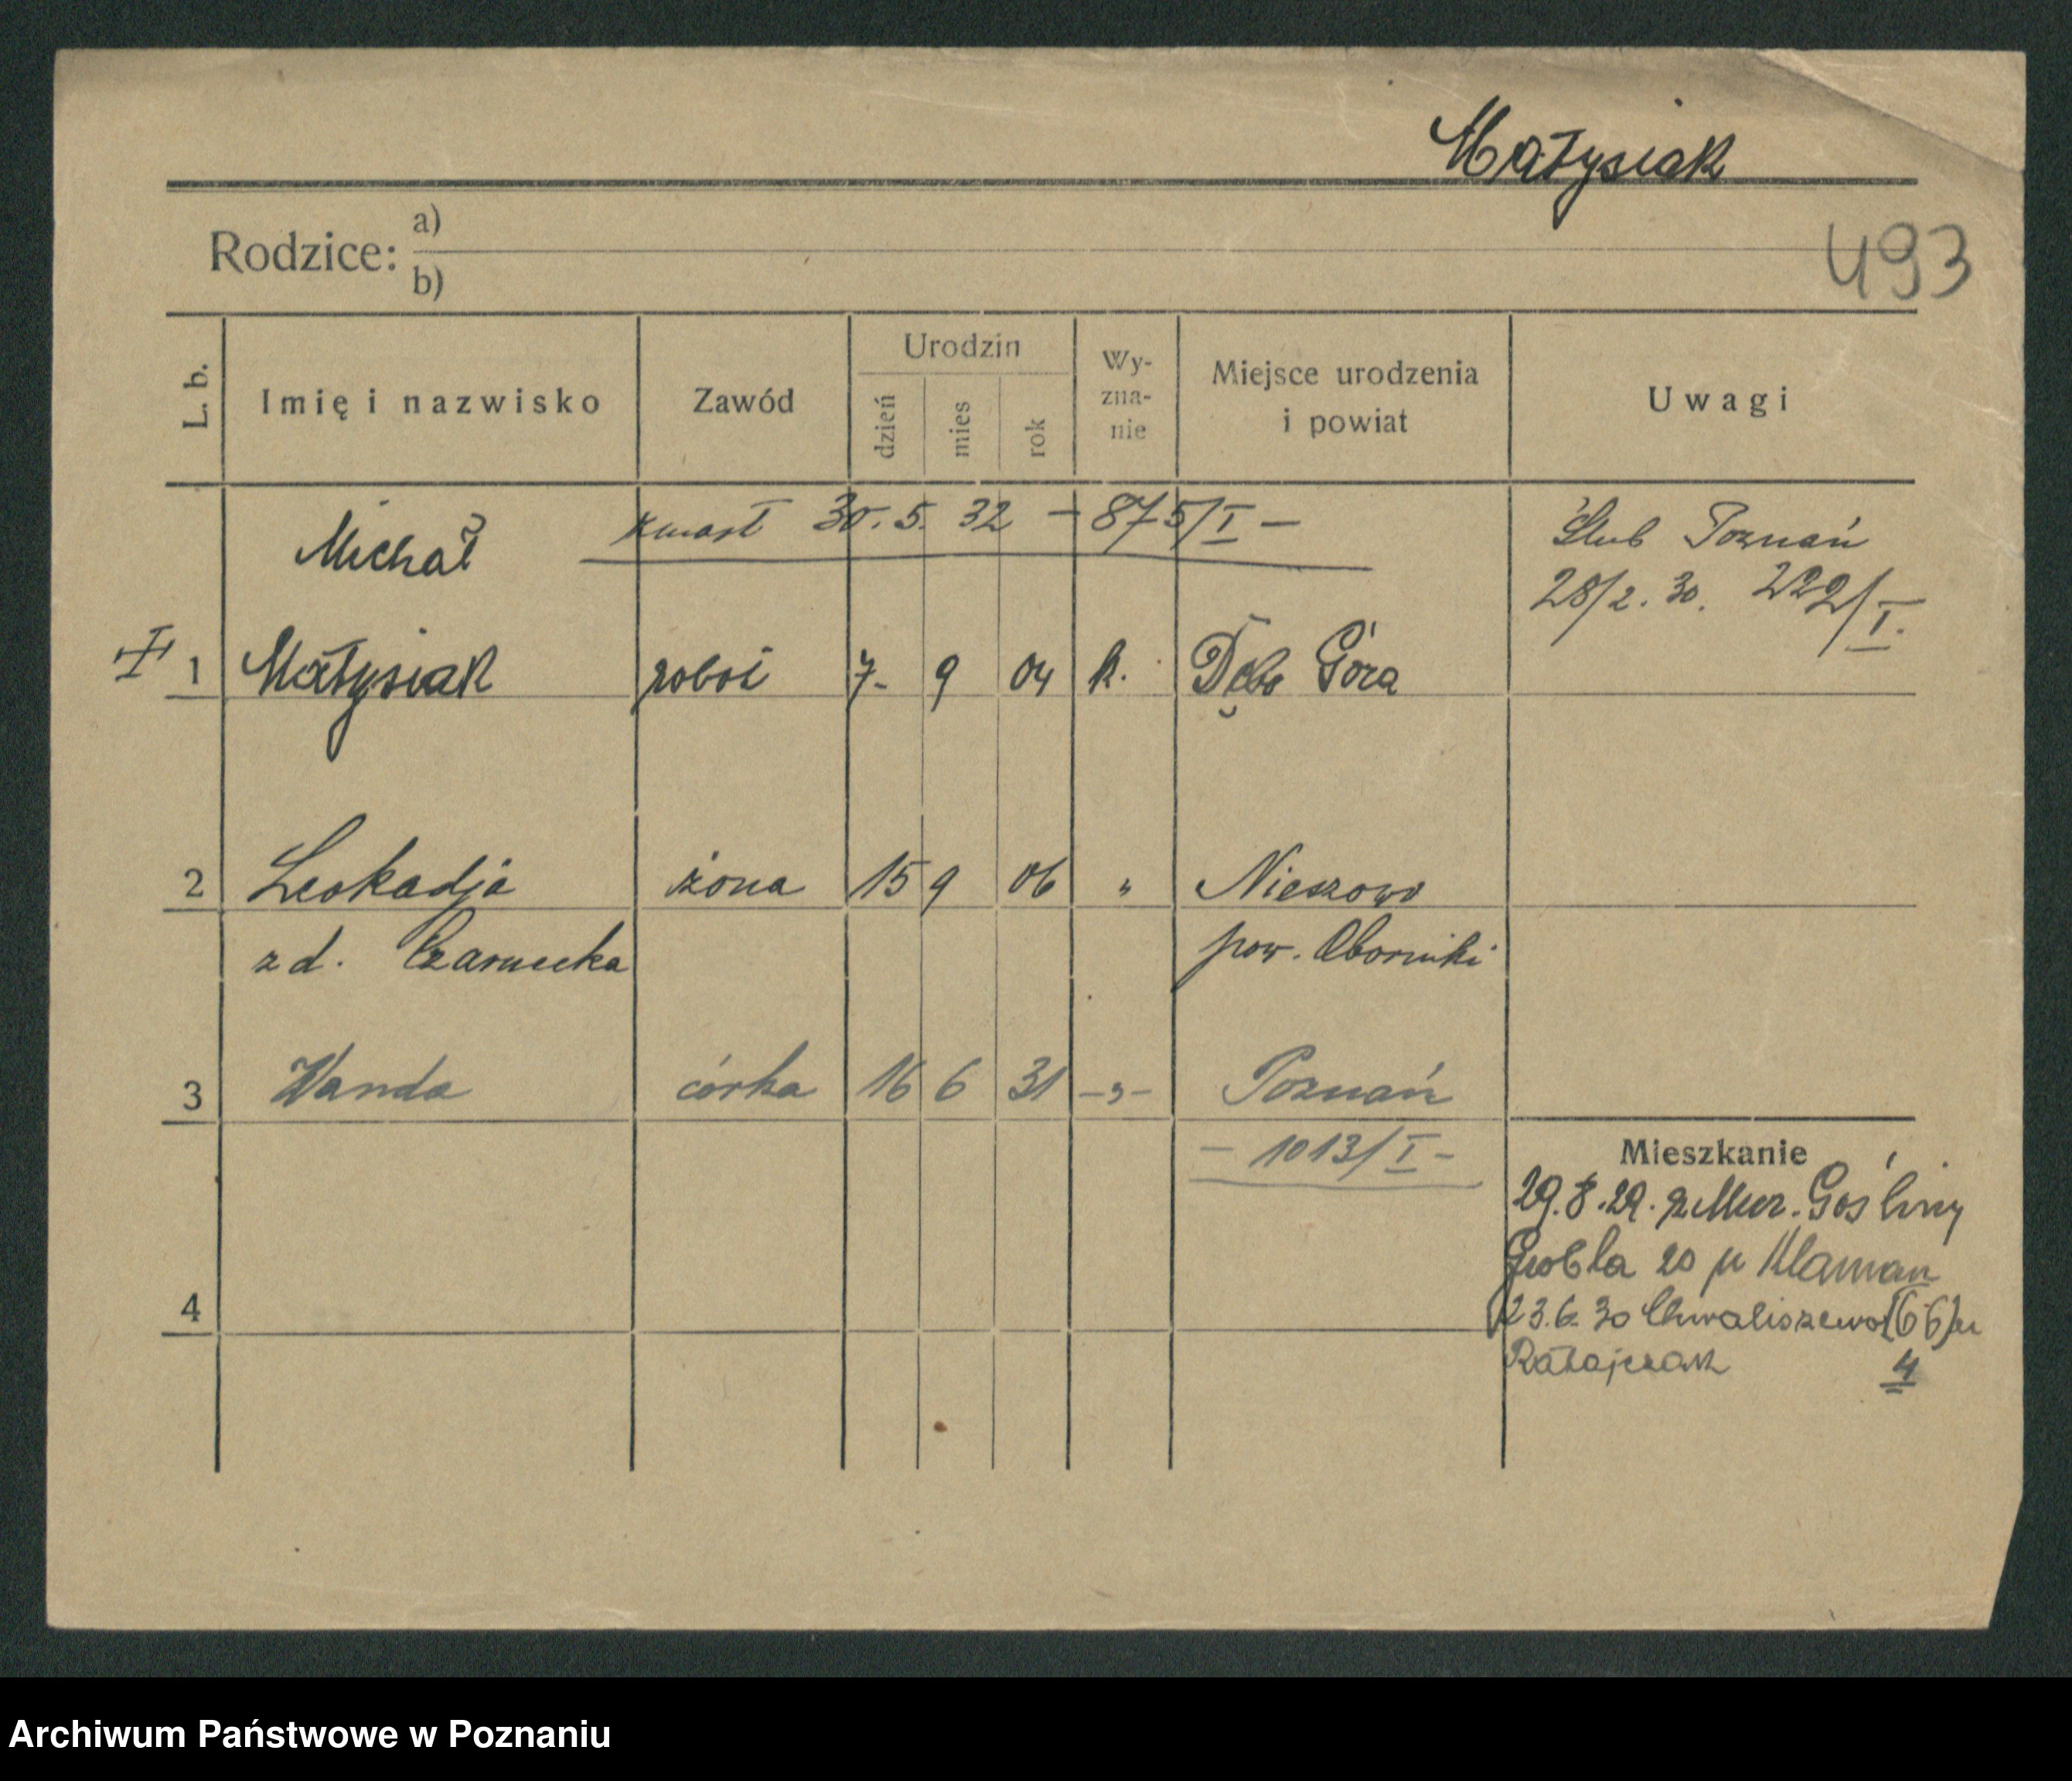 Małysiak
493
Rodzice: a)
b)
L. b. Imię i nazwisko Zawód Urodzin dzień mies rok Wy-zna-nie Miejsce urodzenia i powiat Uwagi
Michał zmarł 30. 5. 32 – 875/I – Ślub Poznań
28/2. 30. 222/I.
1 Małysiak robot 7- 9 04 k. Dęb. Góra
2 Leokadja żona 15 9 06 " Nieszawa
z d. Czarnecka pow. Oborniki
3 Wanda córka 16 6 31 -„- Poznań
– 1013/I –
Mieszkanie
29.8.29. z Mur. Gośliny
Grobla 20 u
4
23.6.30 Chwaliszewo (66) u
Ratajczak 4
Archiwum Państwowe w Poznaniu